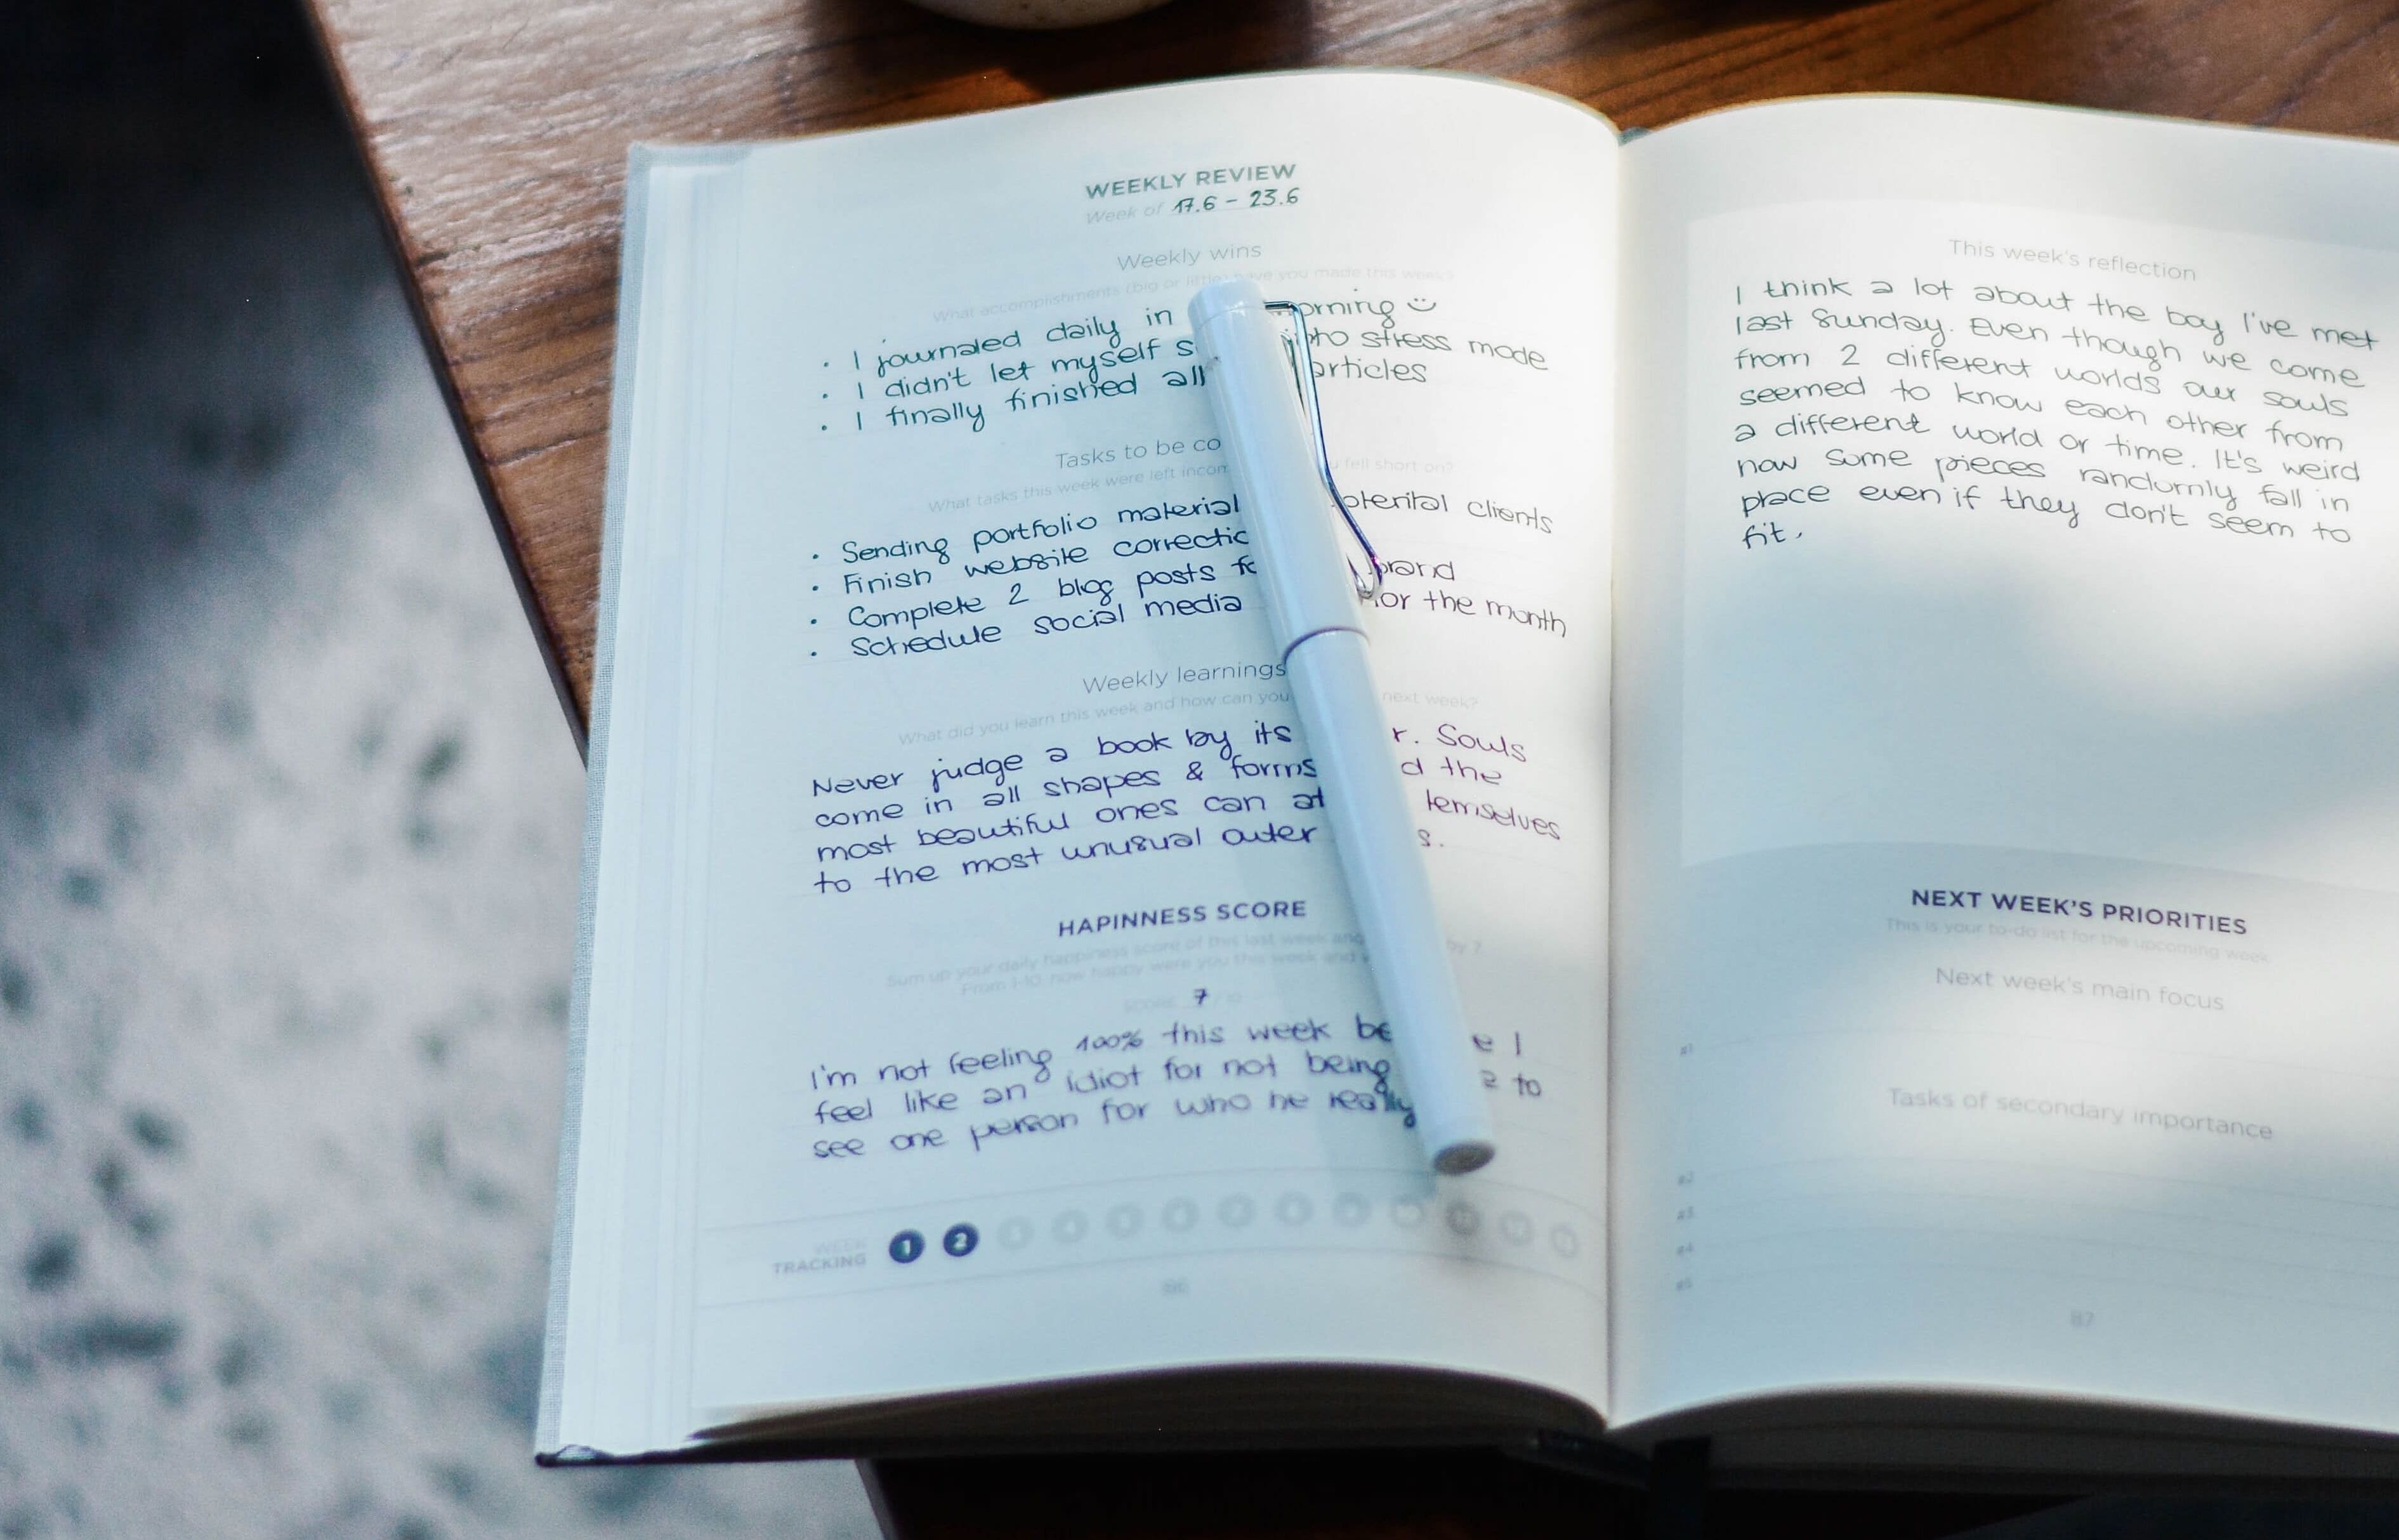 WEEKLY REVIEW
Week of 17.6 - 23.6
Weekly wins
What accomplishments (big or little) have you made this week?
• I journaled daily in orning
• I didn't let myself s into stress mode
• I finally finished all articles
Tasks to be co
What tasks this week were left incom u fell short on?
• Sending portfolio material potential clients
• Finish website correctio
• Complete 2 blog posts fo brand
• Schedule social media for the month
Weekly learnings
What did you learn this week and how can you next week?
Never judge a book by its r. Souls
come in all shapes & forms d the
most beautiful ones can at temselves
to the most unusual outer s.
HAPINNESS SCORE
Sum up your daily happiness score of this last week and by 7
From 1-10, how happy were you this week and
SCORE 7 /10
I'm not feeling 100% this week be e I
feel like an idiot for not being to
see one person for who he really
WEEK
TRACKING 1 2
This week's reflection
I think a lot about the boy I've met
last Sunday. Even though we come
from 2 different worlds our souls
seemed to know each other from
a different world or time. It's weird
how some pieces randomly fall in
place even if they don't seem to
fit.
NEXT WEEK'S PRIORITIES
This is your to-do list for the upcoming week
Next week's main focus
#1
Tasks of secondary importance
#2
#3
#4
#5
87